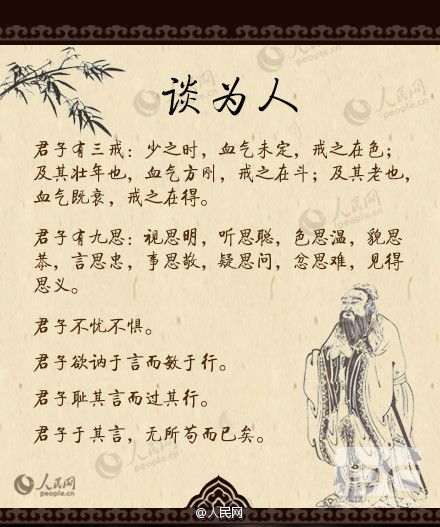 谈为人
君子有三戒：少之时，血气未定，戒之在色；
及其壮年也，血气方刚，戒之在斗；及其老也，
血气既衰，戒之在得。
君子有九思：视思明，听思聪，色思温，貌思
恭，言思忠，事思敬，疑思问，忿思难，见得
思义。
君子不忧不惧。
君子欲讷于言而敏于行。
君子耻其言而过其行。
君子于其言，无所苟而已矣。
人民网
people.cn
人民网
people.cn
人民网
people.cn
人民网
people.cn
@人民网